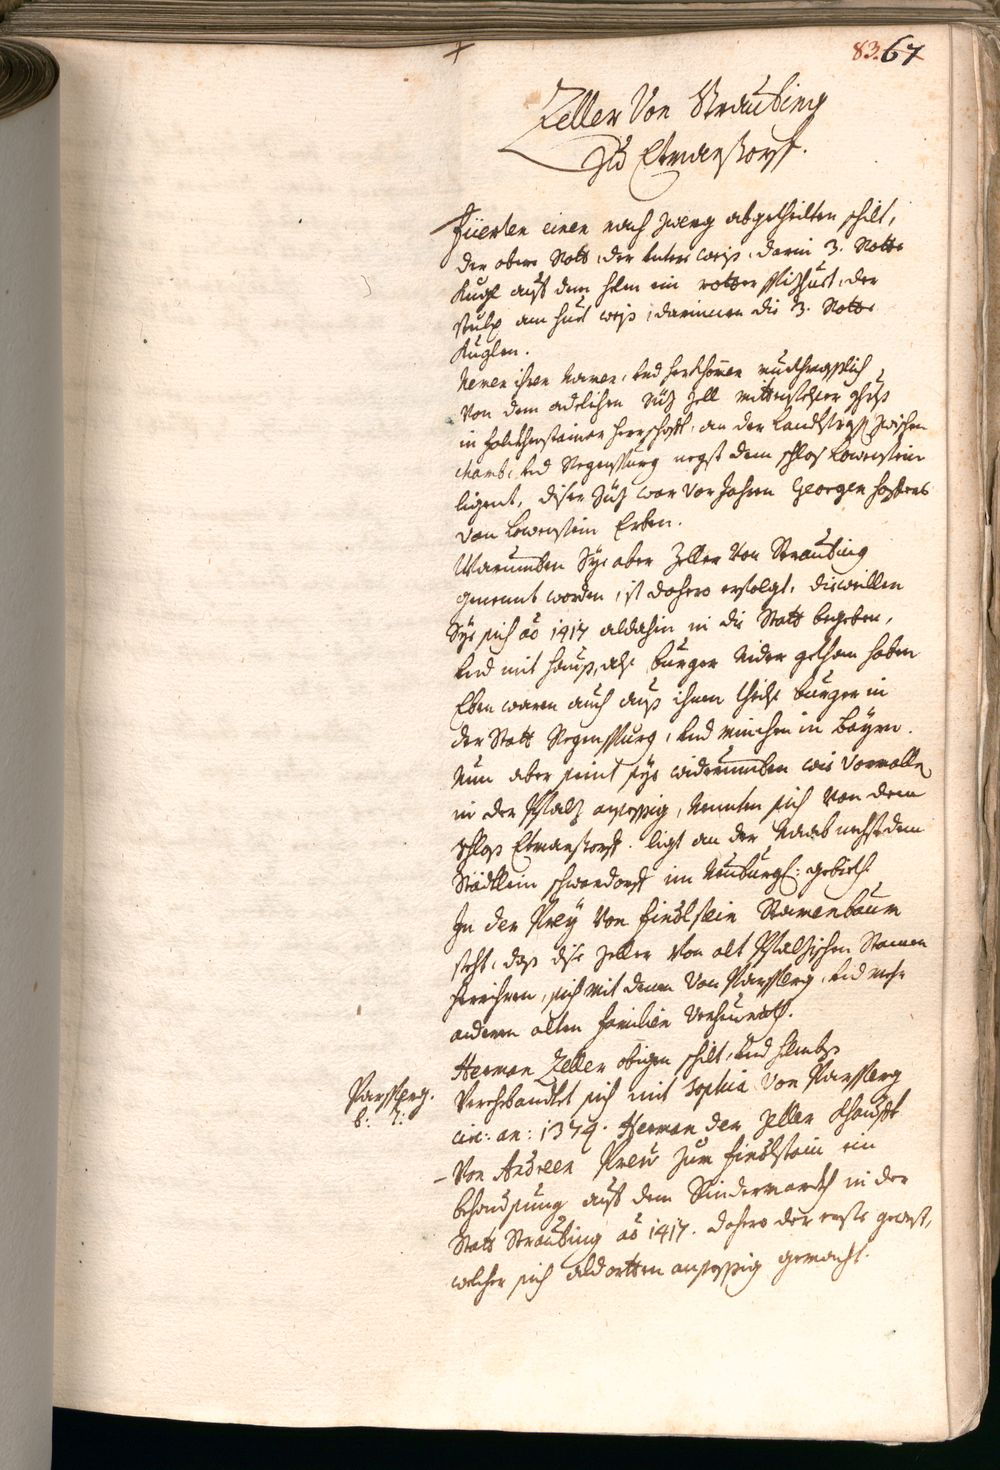 83. 67
Zeller Von Straubing
Zu Etmanstorf.
Füerten einen nach zwerg abgetheilten schilt,
der ober Rott, der Unter weiss, darin 3. Rotte
Kugl auf dem helm ein rotter Spizhuet, der
stulp am huet weiss, darinnen die 3. Rotte
Kuglen.
Nemen ihren Namen, Und herkhomen
Von dem adelichen Siz Zell
in Falkhensteiner herrschafft, an der Landstrass zwischen
Chamb, Und Regenspurg negst dem schloss Lowenstein
ligent, diser Siz war Vor Jahren Georgen
Von Lewenstein Erben.
Warumben Sye aber Zeller Von Straubing
genennt worden, ist dahero erfolgt, dieweillen
Sye sich ao 1417 aldahin in die Statt begeben,
Und mit hauss, als burger Nider gethan haben
Eben waren auch auss ihnen etliche burger in
der Statt Regenspurg, Und München in Bayrn.
Nun aber seint sye widerumben wie Vormalls
in der Pfalz ansessig, Nennten sich Von dem
schloss Etmanstorf. ligt an der Naab nechst dem
Städtlein schwandorf im Neuburg: gebieth.
In der Prey Von Findlstein Stamenbaum
steht, dass dise Zeller Von alt Pfalzischen Stamen
herrühren, sich mit denen Von Parsperg, Und mehr
anderen alten Familien Verheurath.
Herman Zeller obigen schilt, Und helmbs
Verehebandlet sich mit Sophia Von Parsperg
Parsperg.
cir: an: 1379. Herman der Zeller khauft
Von Andreen Preu zum Findlstain ein
behausung auf dem Rindermarkh in der
Statt Straubing ao 1417. dahero der erste gewest,
welcher sich aldortten ansessig gemacht.